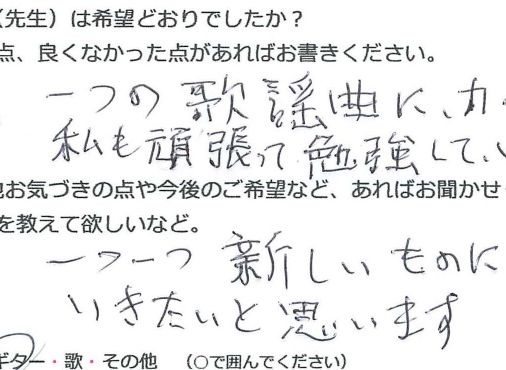 （先生）は希望どおりでしたか？
点、良くなかった点があればお書きください。
一つの歌謡曲に、力
私も頑張って勉強して、い
お気づきの点や今後のご希望など、あればお聞かせ
を教えて欲しいなど。
一つ一つ新しいものに
いきたいと思います
ギター・歌・その他　（○で囲んでください）